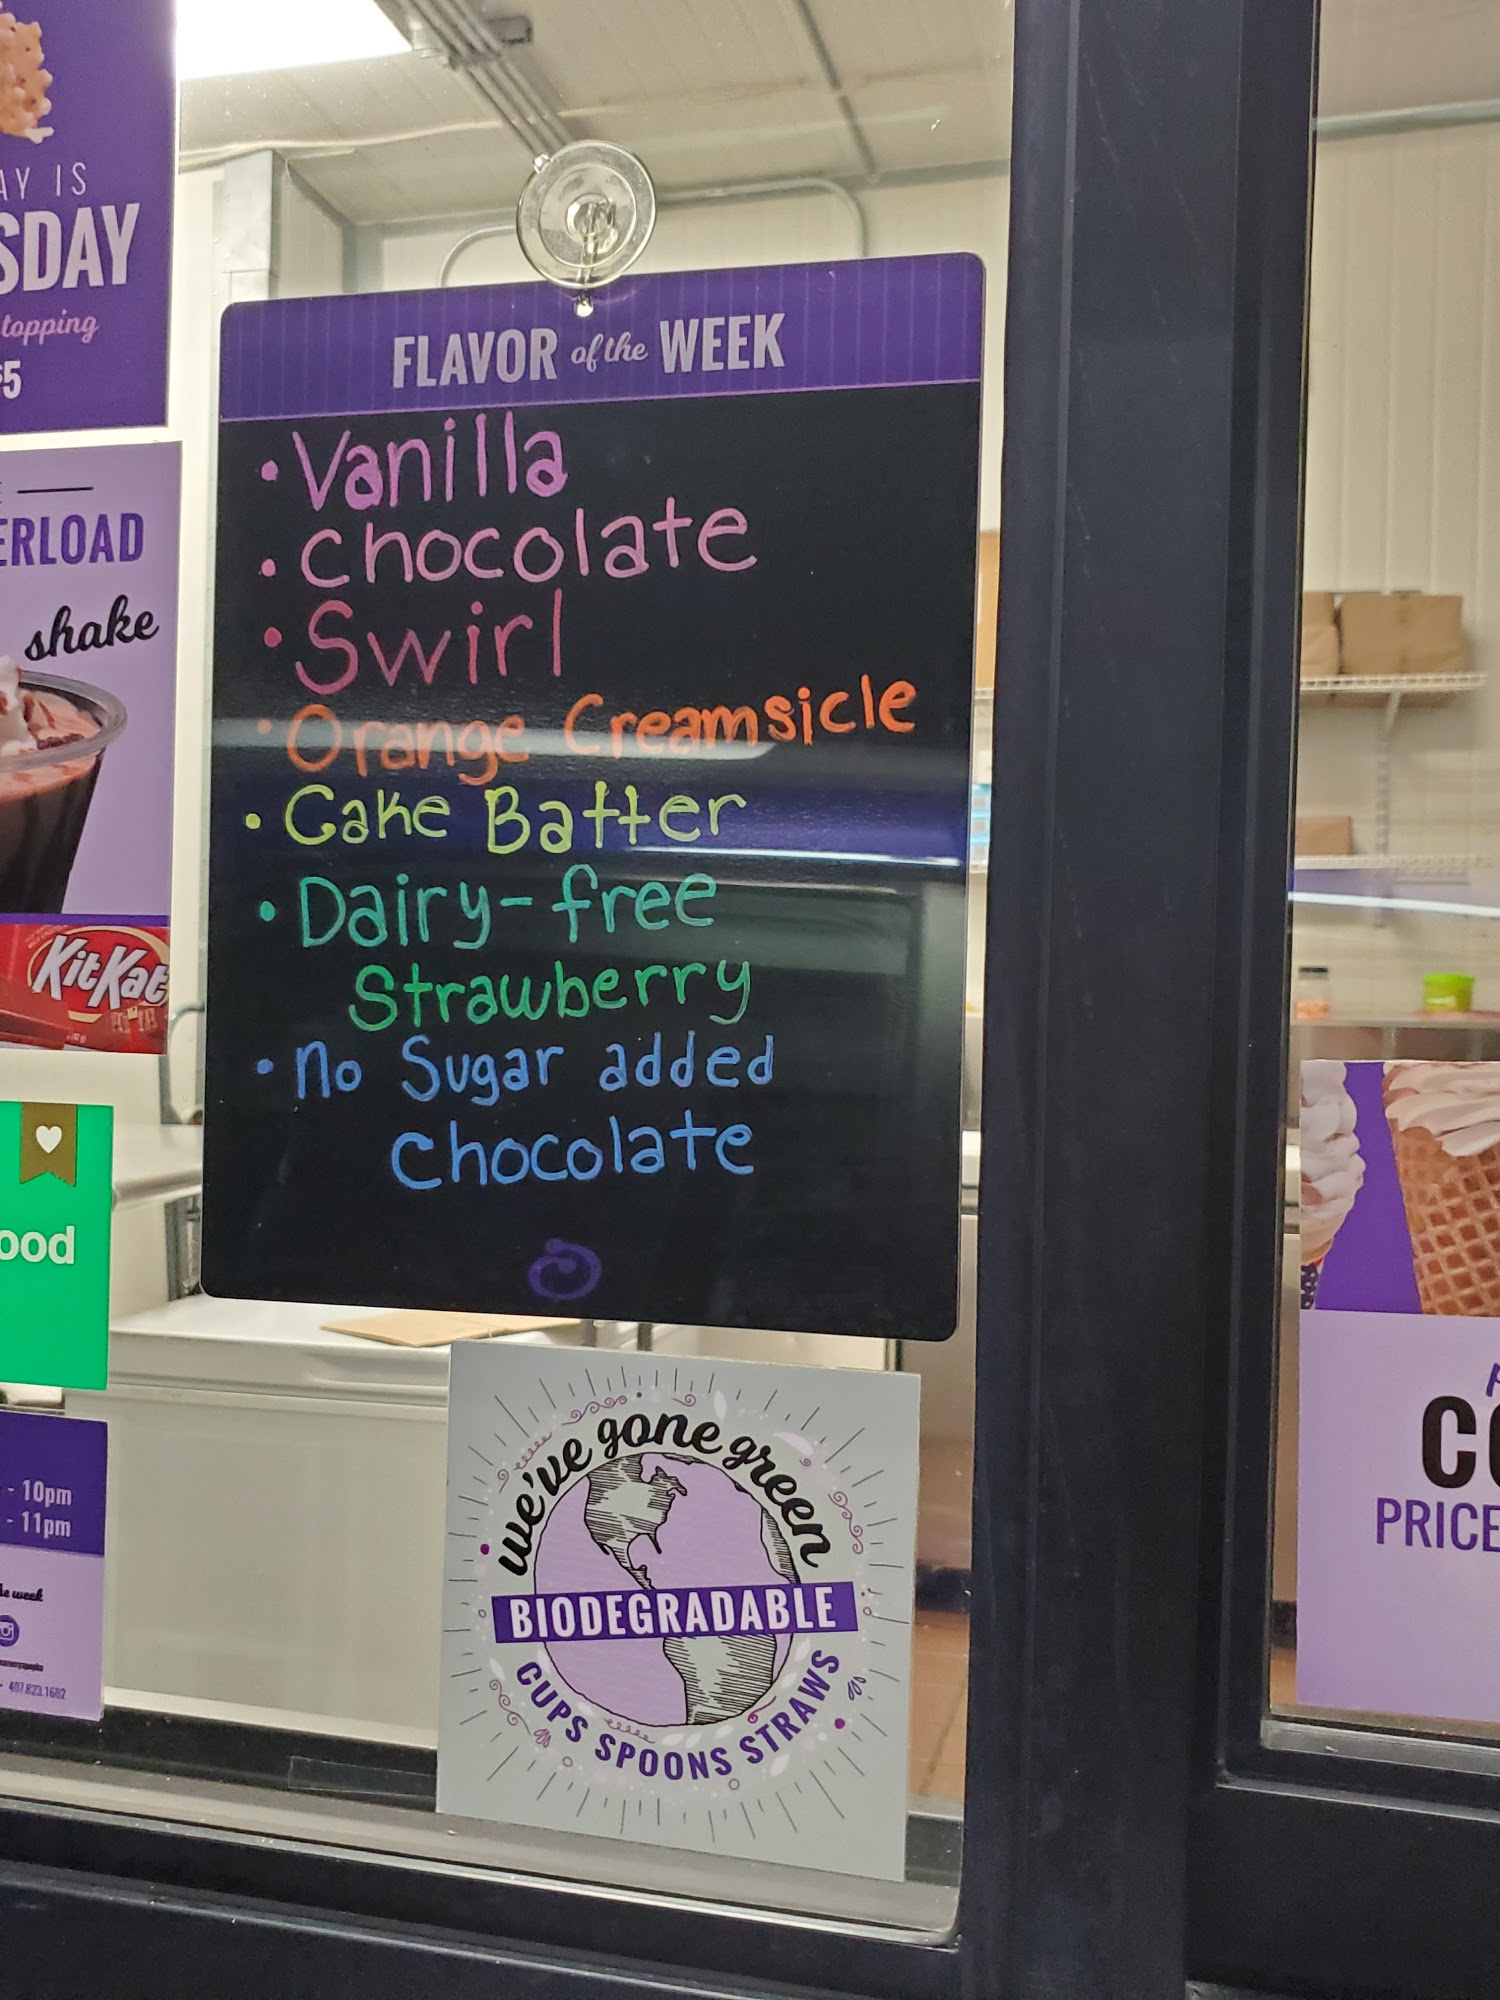 AY IS
SDAY
topping
$5
ERLOAD
shake
KitKat
ood
- 10pm
- 11pm
the week
407.823.1602
FLAVOR of the WEEK
• Vanilla
• Chocolate
• Swirl
• Orange Creamsicle
• Cake Batter
• Dairy-free
Strawberry
• no Sugar added
Chocolate
we've gone green
BIODEGRADABLE
CUPS SPOONS STRAWS
CO
PRICE